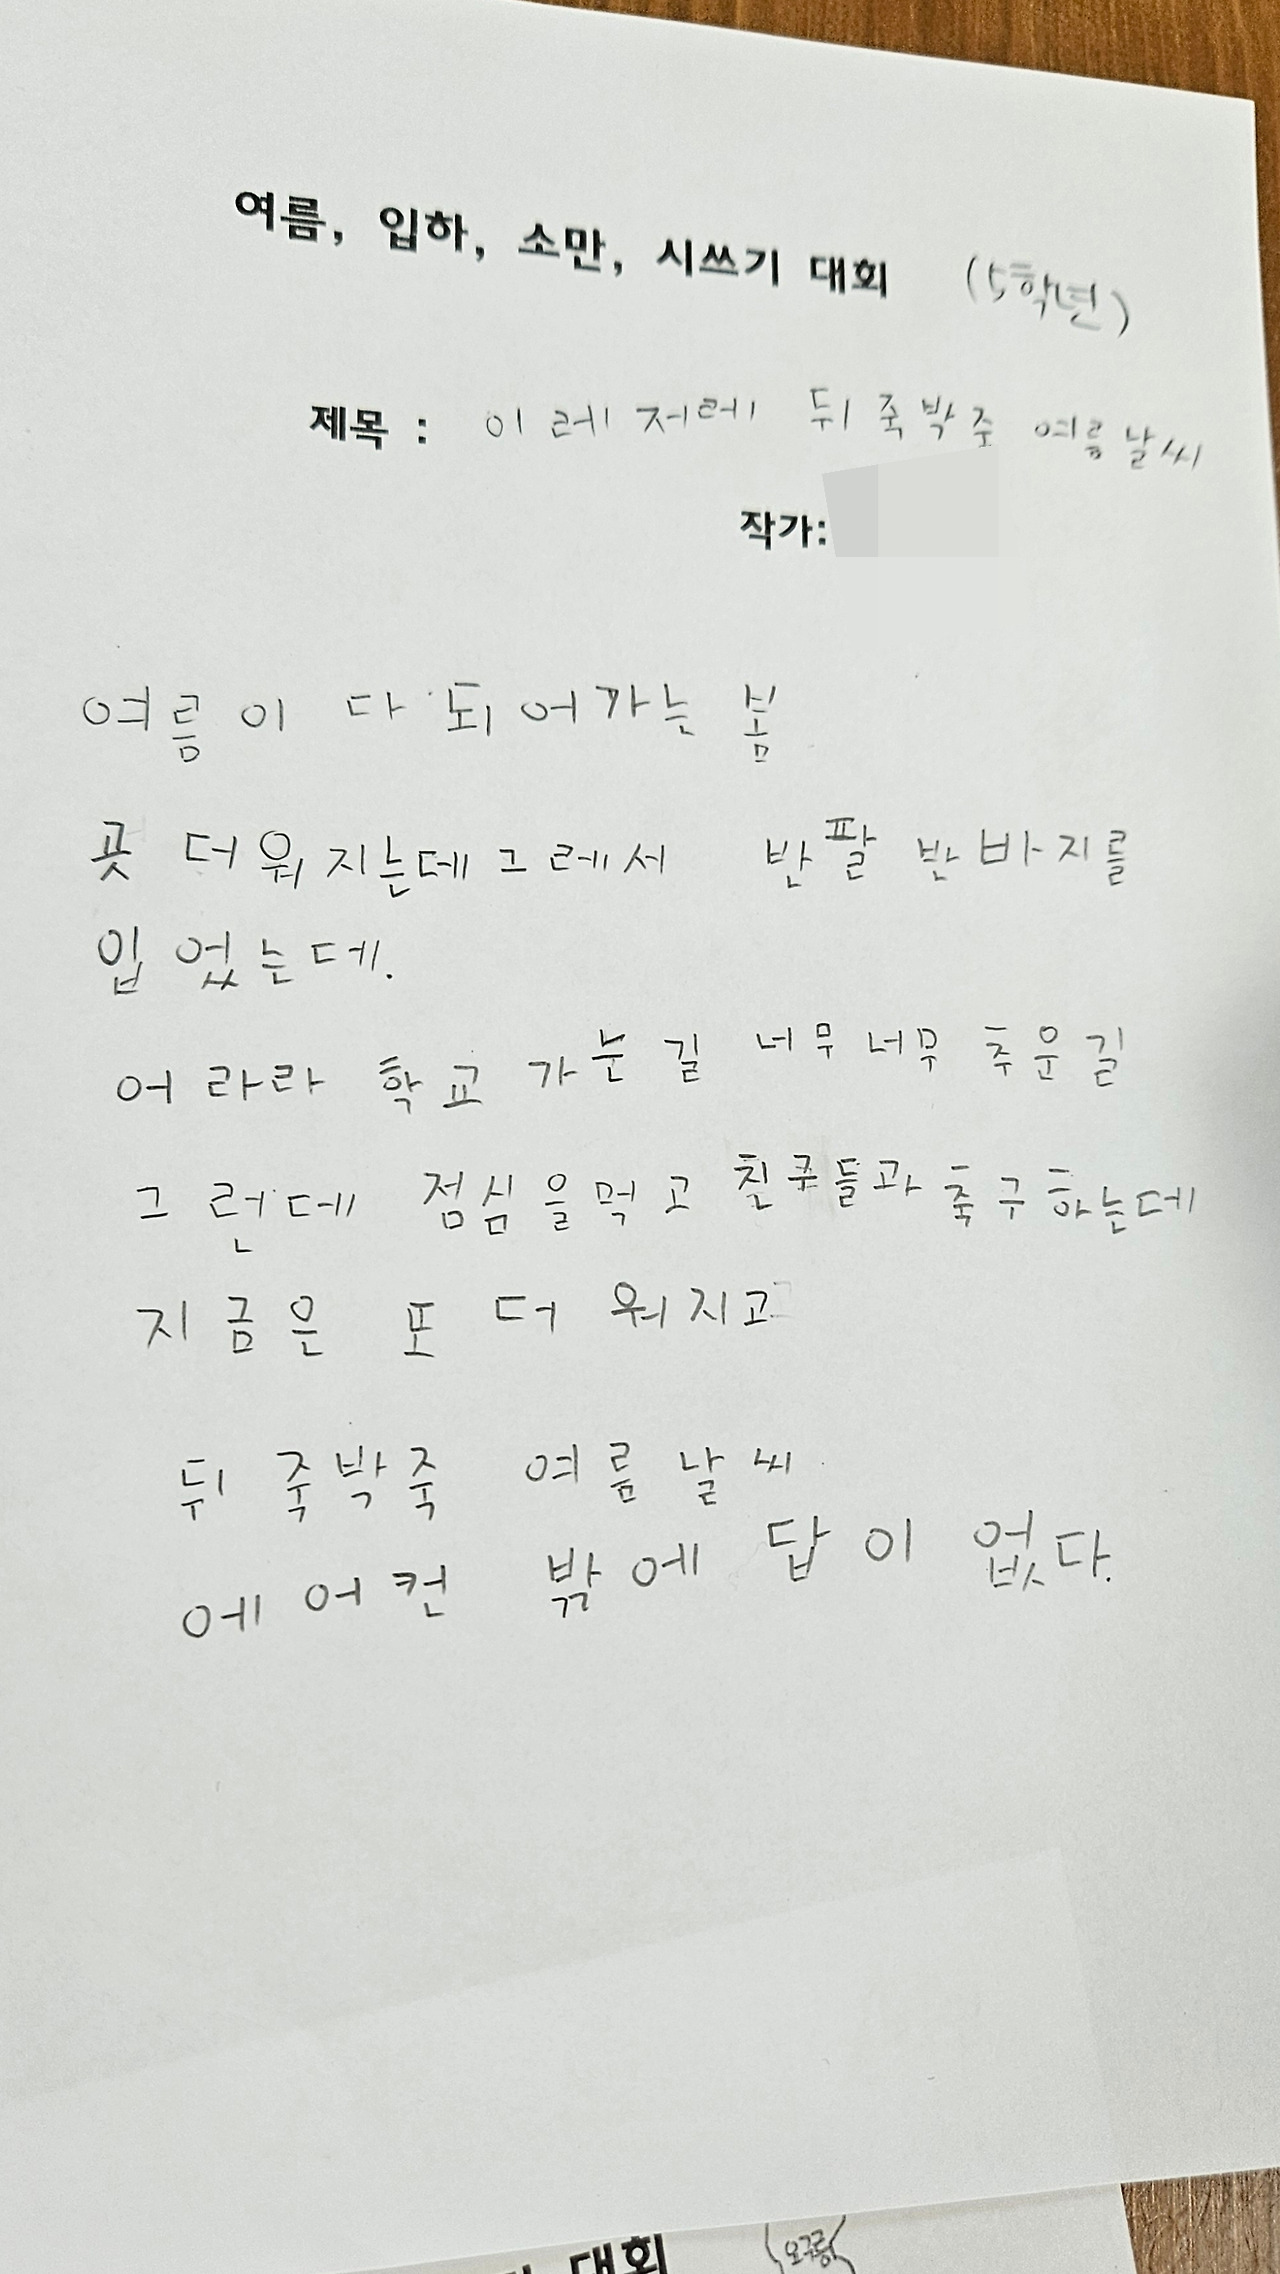 여름, 입하, 소만, 시쓰기 대회 (5학년)
제목 : 이레저레 뒤죽박주 여름날씨
작가:
여름이 다되어가는 봄
곳 더워지는데그레서 반팔 반바지를
입었는데.
어라라 학교 가눈길 너무너무 추운길
그런데 점심을먹고 친쿠들과축구하는데
지금은 또 더워지고
뒤죽박죽 여름날씨
에어컨 밖에 답이 없다.
대회